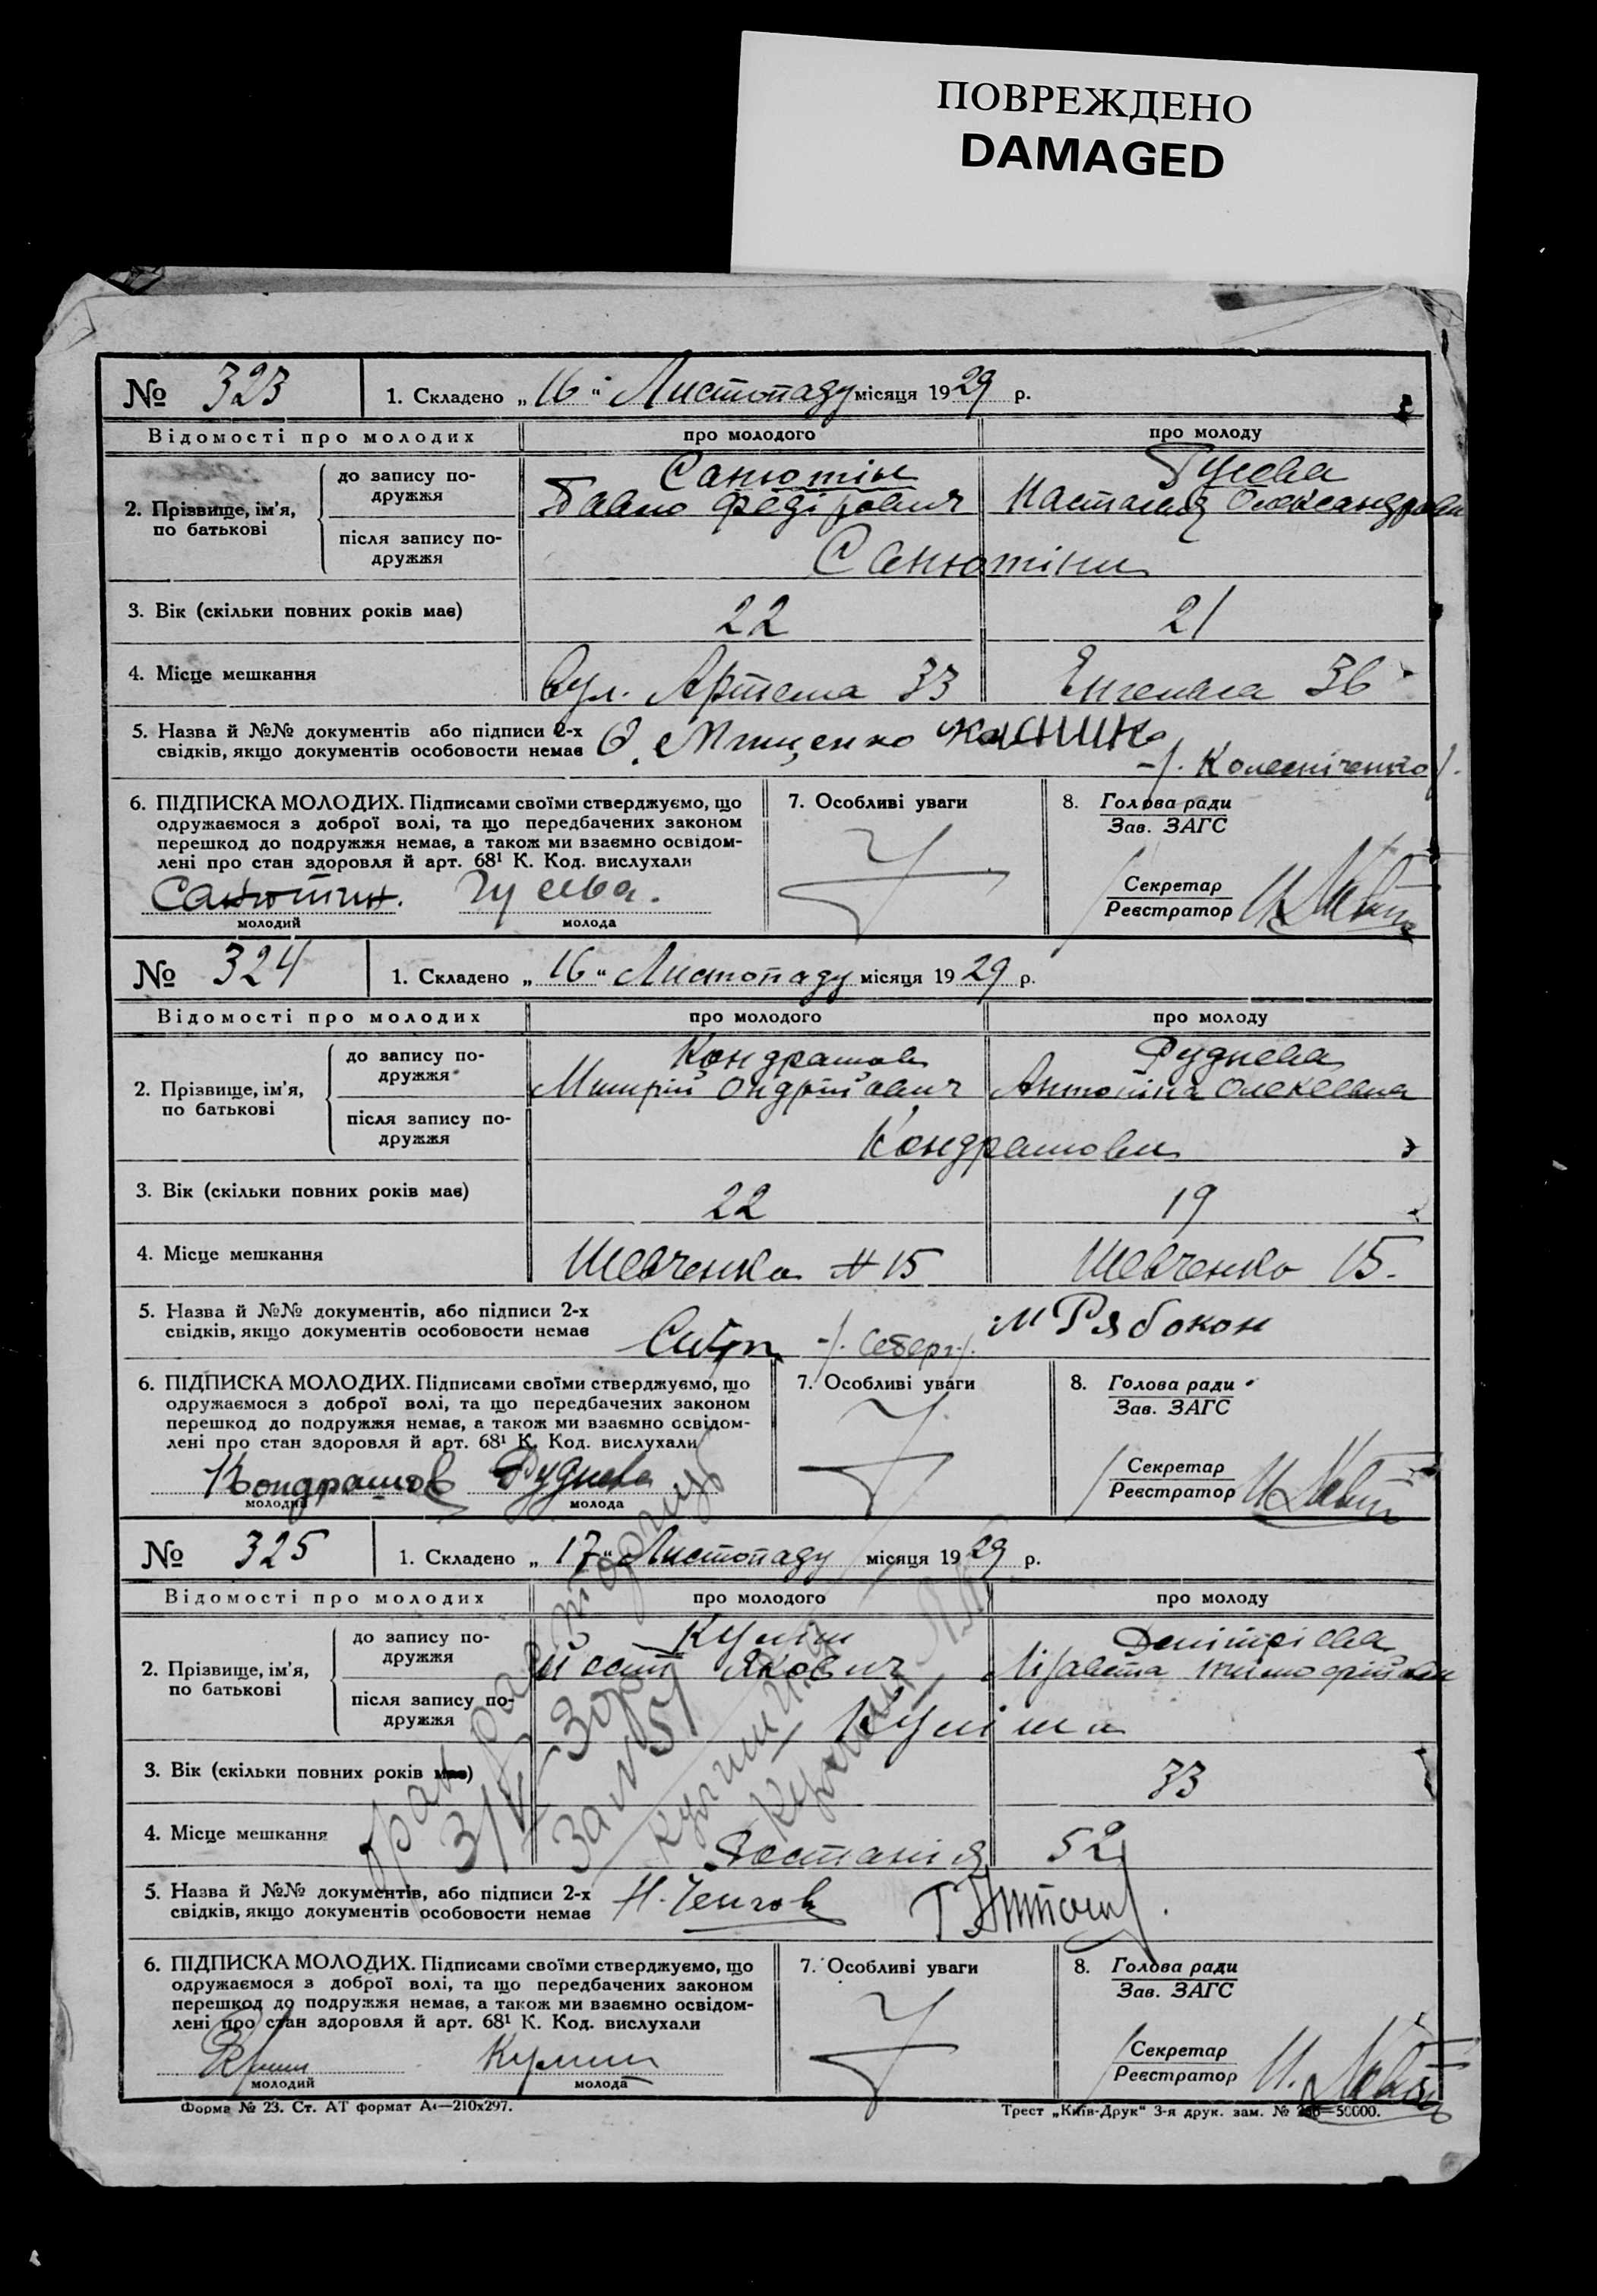 ПОВРЕЖДЕНО
DAMAGED
№ 323 1. Складено „16“ Листопаду місяця 1929 р.
Відомості про молодих про молодого про молоду
2. Прізвище, ім'я, по батькові
до запису подружжя Санютін Гусева
Павло Федірович Настасія Олександровн
після запису подружжя Санютіни
3. Вік (скільки повних років має) 22 21
4. Місце мешкання вул. Артема 33 Енгельса 36
5. Назва й №№ документів або підписи 2-х
свідків, якщо документів особовости немає Мищенко
/. Колесніченко /.
6. ПІДПИСКА МОЛОДИХ. Підписами своїми стверджуємо, що 7. Особливі уваги 8. Голова ради
одружаємося з доброї волі, та що передбачених законом Зав. ЗАГС
перешкод до подружжя немає, а також ми взаємно освідом-
лені про стан здоровля й арт. 68¹ К. Код. вислухали
Секретар
Санютин. Гусева. Реєстратор
молодий молода
№ 324 1. Складено „16“ Листопаду місяця 1929 р.
Відомості про молодих про молодого про молоду
2. Прізвище, ім'я, по батькові
до запису подружжя Кондрашов Руднева
Митрій Ондрійович Антоніна Олексевна
після запису подружжя Кондрашови
3. Вік (скільки повних років має) 22 19
4. Місце мешкання Шевченка № 15 Шевченко 15.
5. Назва й №№ документів, або підписи 2-х
свідків, якщо документів особовости немає М Рябокон
6. ПІДПИСКА МОЛОДИХ. Підписами своїми стверджуємо, що 7. Особливі уваги 8. Голова ради
одружаємося з доброї волі, та що передбачених законом Зав. ЗАГС
перешкод до подружжя немає, а також ми взаємно освідом-
лені про стан здоровля й арт. 68¹ К. Код. вислухали
Секретар
Кондрашов Руднева Реєстратор
молодий молода
№ 325 1. Складено „17“ Листопаду місяця 1929 р.
Відомості про молодих про молодого про молоду
2. Прізвище, ім'я, по батькові
до запису подружжя Куліш
Якович Лізавета
після запису подружжя Куліша
3. Вік (скільки повних років має) 33
4. Місце мешкання 52
5. Назва й №№ документів, або підписи 2-х
свідків, якщо документів особовости немає
6. ПІДПИСКА МОЛОДИХ. Підписами своїми стверджуємо, що 7. Особливі уваги 8. Голова ради
одружаємося з доброї волі, та що передбачених законом Зав. ЗАГС
перешкод до подружжя немає, а також ми взаємно освідом-
лені про стан здоровля й арт. 68¹ К. Код. вислухали
Секретар
Кулиш Реєстратор
молодий молода
Форма № 23. Ст. АТ формат А4—210х297. Трест „Київ-Друк“ 3-я друк. зам. №